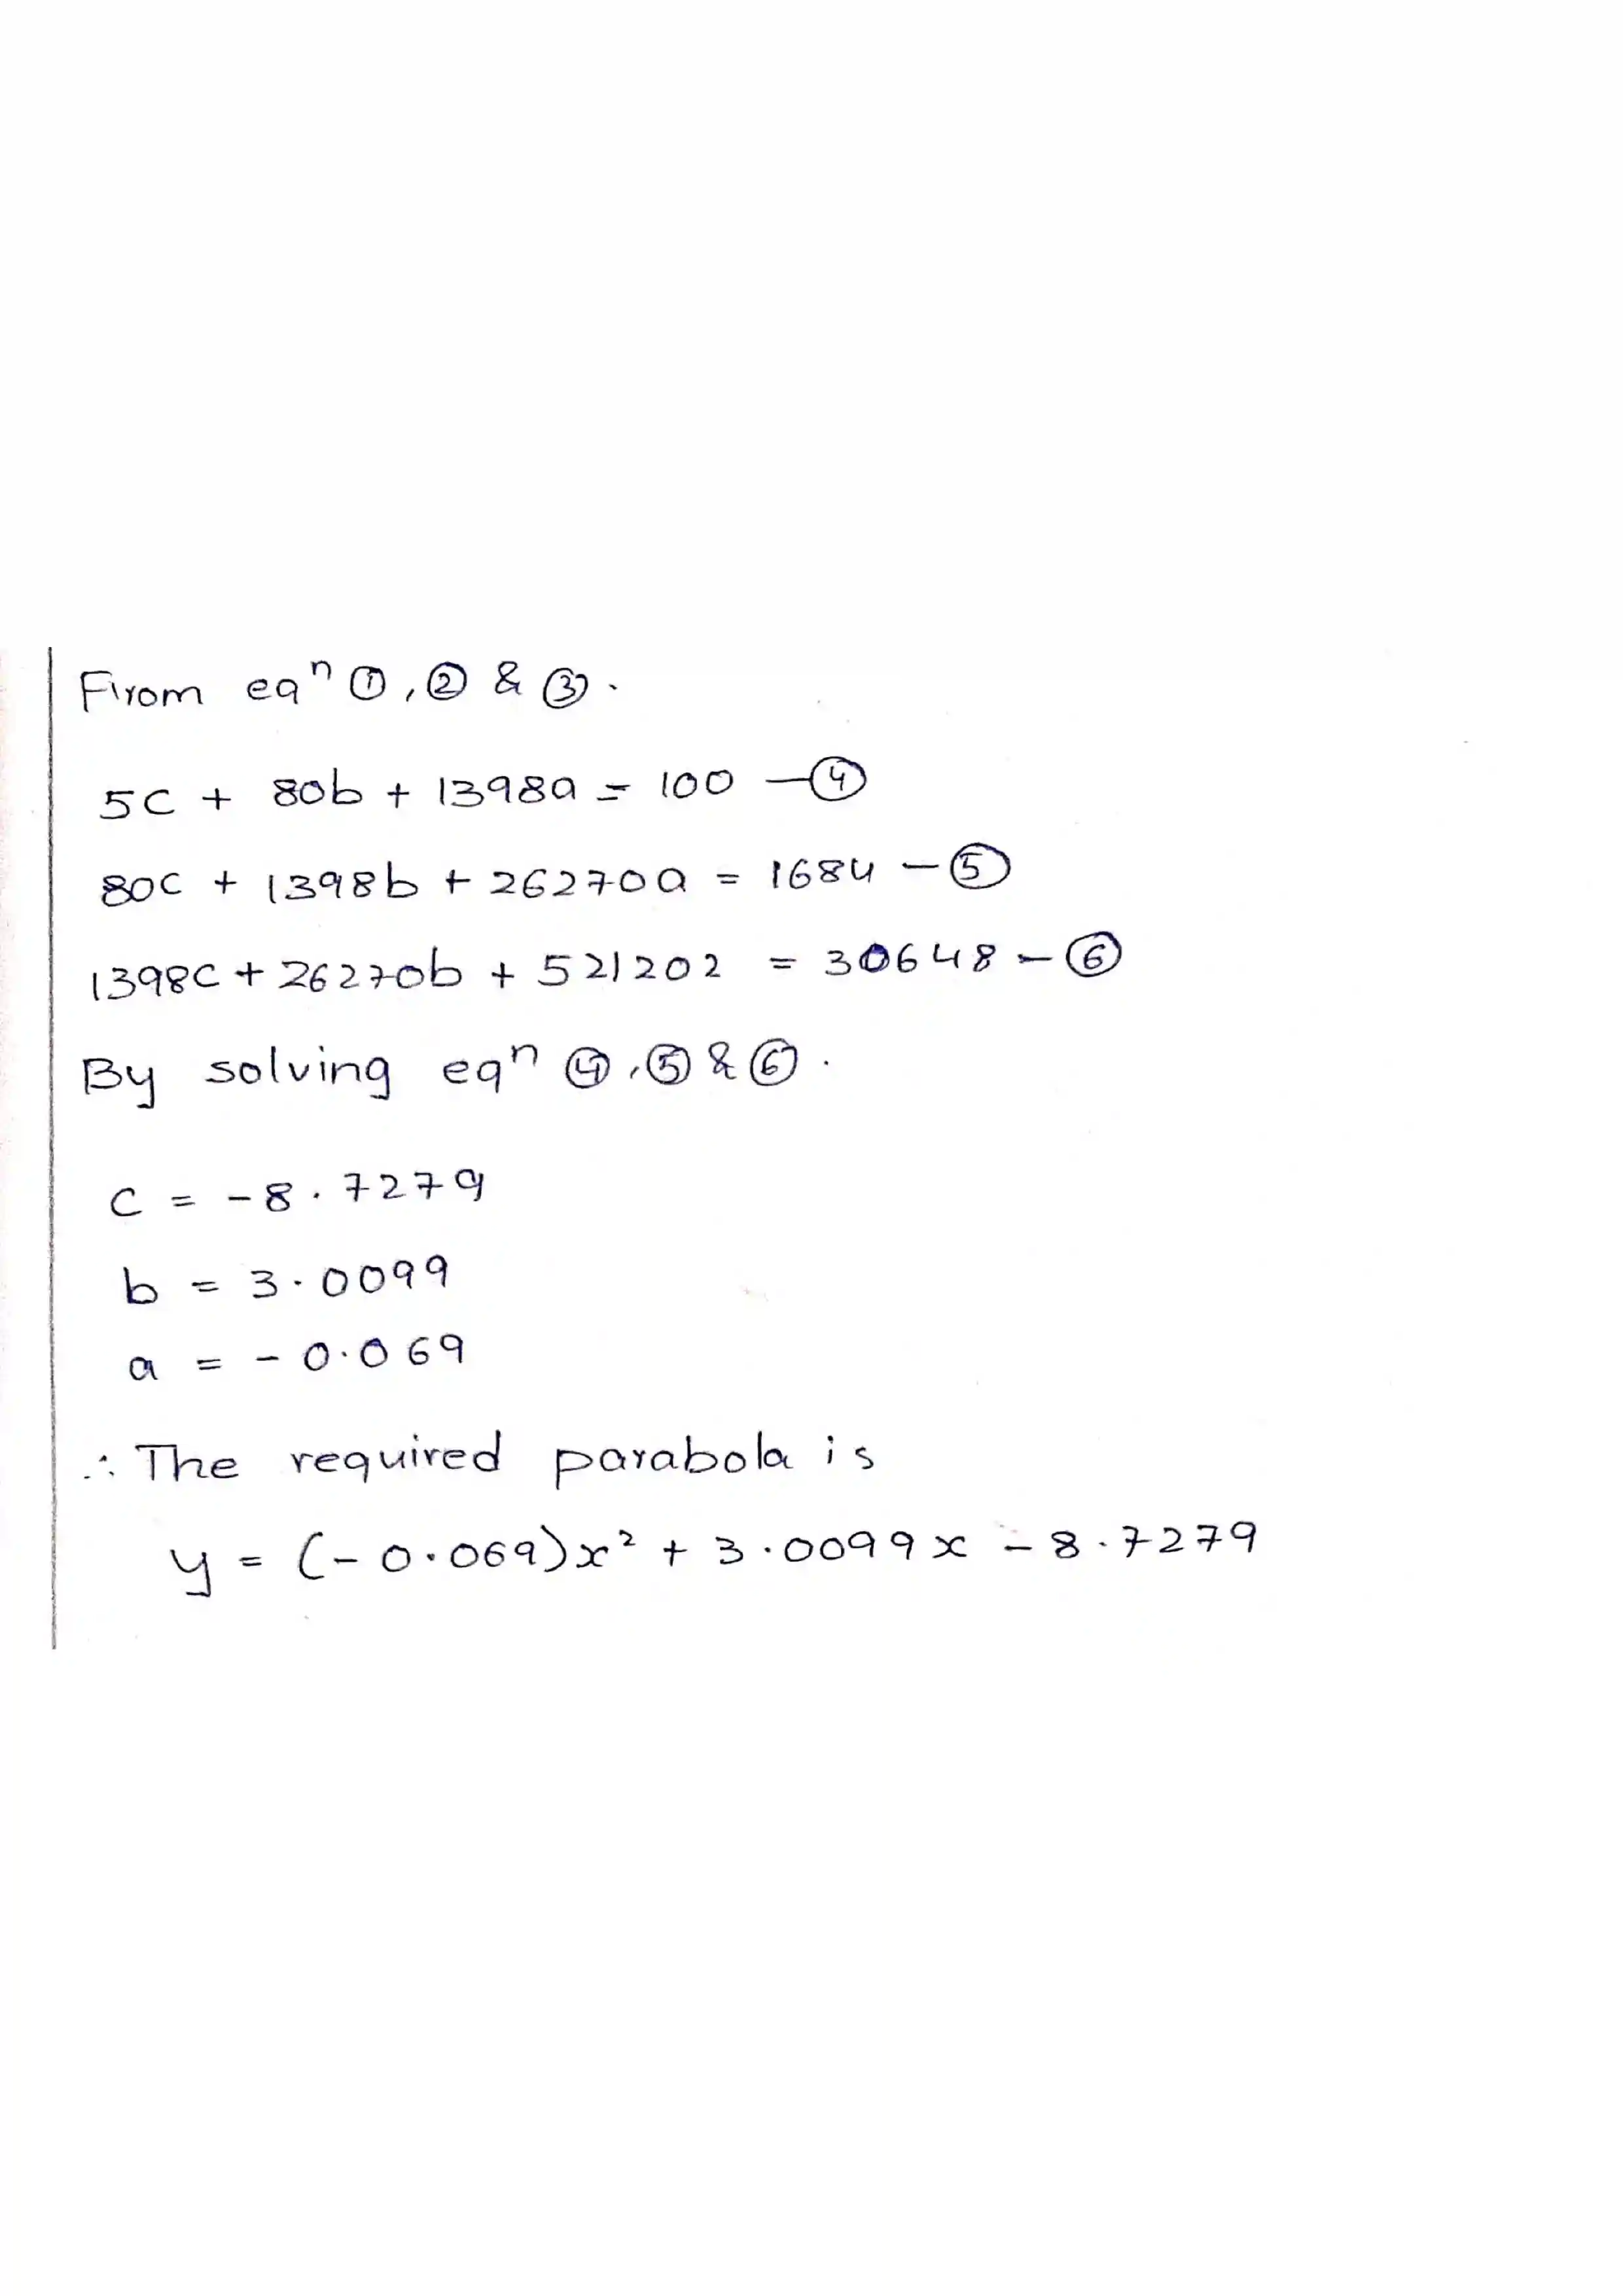 From eqⁿ ①, ② & ③.
5C + 80b + 1398a = 100 —④
80C + 1398b + 26270a = 1684 —⑤
1398C + 26270b + 521202 = 30648 —⑥
By solving eqⁿ ④, ⑤ & ⑥.
C = -8.7279
b = 3.0099
a = -0.069
∴ The required parabola is
y = (-0.069)x² + 3.0099x - 8.7279